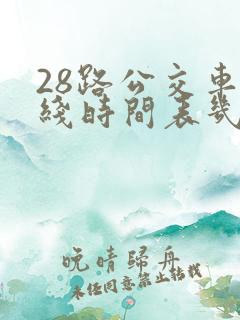 28路公交車
綫時間表幾
晚晴歸舟
未经同意禁止转载